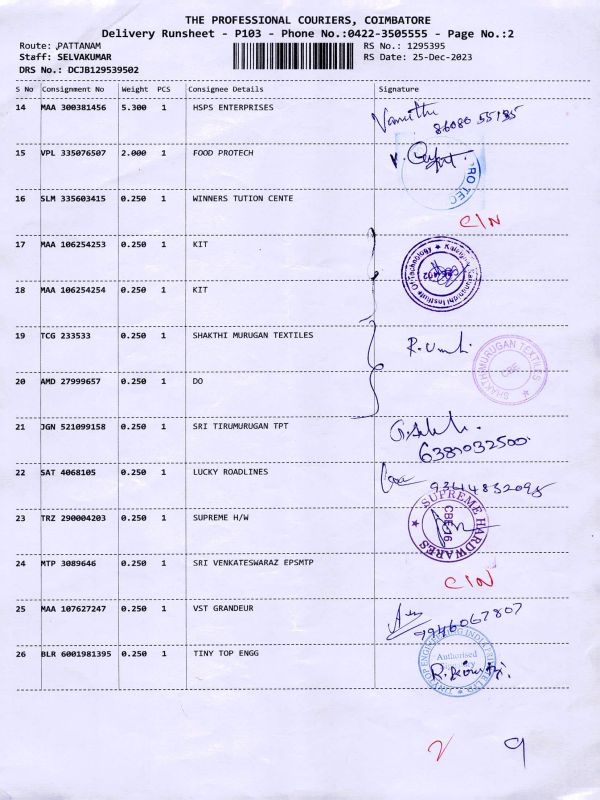 THE PROFESSIONAL COURIERS, COIMBATORE
Delivery Runsheet - P103 - Phone No.:0422-3505555 - Page No.:2
Route: PATTANAM RS No.: 1295395
Staff: SELVAKUMAR RS Date: 25-Dec-2023
DRS No.: DCJB129539502
S No Consignment No Weight PCS Consignee Details Signature
14 MAA 300381456 5.300 1 HSPS ENTERPRISES
15 VPL 335076507 2.000 1 FOOD PROTECH
16 SLM 335603415 0.250 1 WINNERS TUTION CENTE
C/N
17 MAA 106254253 0.250 1 KIT
18 MAA 106254254 0.250 1 KIT
19 TCG 233533 0.250 1 SHAKTHI MURUGAN TEXTILES
SHAKTHI MURUGAN TEXTILES
CBE
20 AMD 27999657 0.250 1 DO
21 JGN 521099158 0.250 1 SRI TIRUMURUGAN TPT
22 SAT 4068105 0.250 1 LUCKY ROADLINES
23 TRZ 290004203 0.250 1 SUPREME H/W
SUPREME HARDWARES
CBE-16
24 MTP 3089646 0.250 1 SRI VENKATESWARAZ EPSMTP
C/N
25 MAA 107627247 0.250 1 VST GRANDEUR
9946067807
26 BLR 6001981395 0.250 1 TINY TOP ENGG
Authorised
9